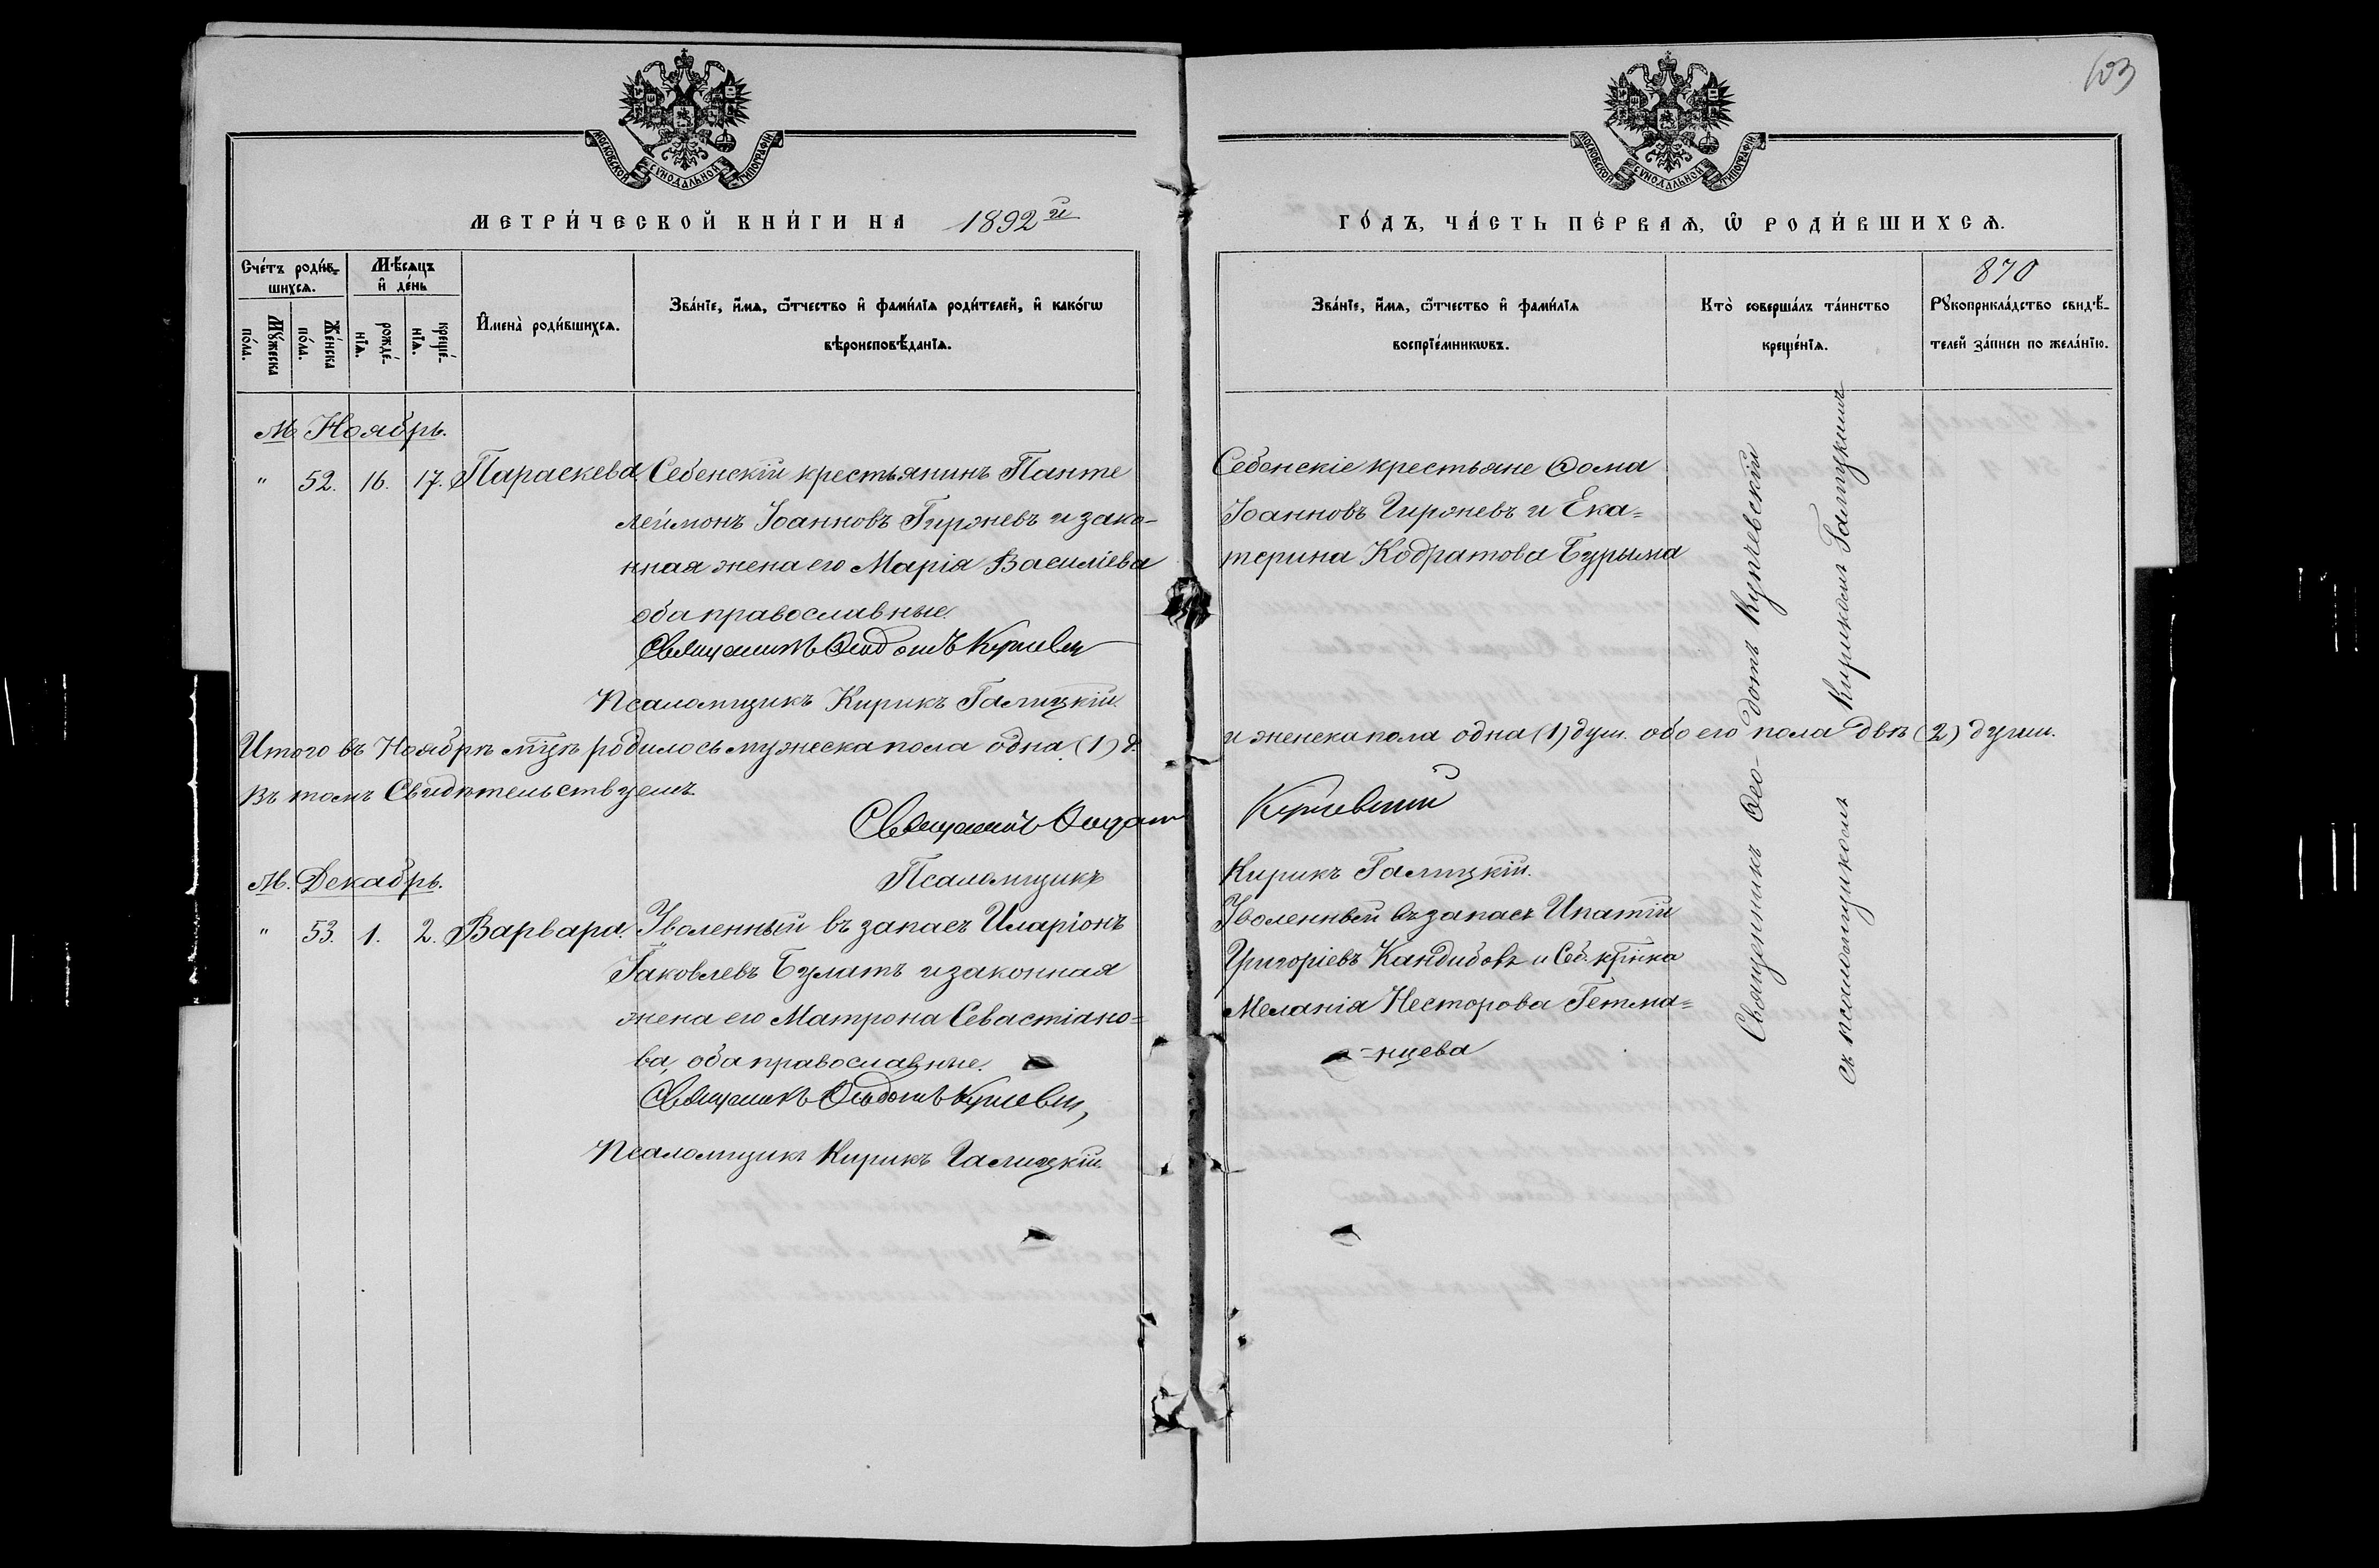 103
МОСКОВСКОЙ СУНОДАЛЬНОЙ ТИПОГРАФІИ
МОСКОВСКОЙ СУНОДАЛЬНОЙ ТИПОГРАФІИ
МЕТРИ́ЧЕСКОЙ КНИ́ГИ НА 1892й
ГО́ДЪ, ЧА́СТЬ ПЕ́РВАѦ, Ѡ҆ РОДИ́ВШИХСѦ.
Сче́тъ роди́в-
шихсѧ.
Мꙋ́жеска
по́ла.
Же́нска
по́ла.
Мѣ́сѧцъ
и҆ де́нь
рожде́-
нїѧ.
креще́-
нїѧ.
И҆мена̀ роди́вшихсѧ.
Зва́нїе, и҆́мѧ, ѻ҆́тчество и҆ фами́лїѧ роди́телей, и҆ како́гѡ
вѣроисповѣ́данїѧ.
Зва́нїе, и҆́мѧ, ѻ҆́тчество и҆ фами́лїѧ
воспрїе́мникѡвъ.
Кто̀ соверша́лъ та́инство
креще́нїѧ.
870
Рꙋкоприкла́дство свидѣ́-
телей за́писи по жела́нїю.
М. Ноябрь.
" 52. 16. 17. Параскева. Себенскій крестьянинъ Панте
леймонъ Іоанновъ Гиржевъ и зако-
нная жена его Марія Василіева
оба православные.
Священникъ Ѳеодотъ Купчевскій
Псаломщикъ Кирикъ Галицкій.
Себенскіе крестьяне Ѳома
Іоанновъ Гиржевъ и Ека=
терина Кодратова Бурыма
Священникъ Ѳео-дотъ Купчевскій
съ псаломщикомъ Кирикомъ Галицкимъ
Итого въ Ноябрѣ мѣцѣ родилось мужеска пола одна (1) д.
и женска пола одна (1) душ. обоего пола двѣ (2) души.
Въ томъ Свидѣтельствуемъ.
Священникъ Ѳеодотъ Купчевскій
Псаломщикъ Кирикъ Галицкій.
М. Декабрь.
" 53. 1. 2. Варвара. Уволенный въ запасъ Иларіонъ
Іаковлевъ Булатъ и законная
жена его Матрона Севастіано=
ва, оба православные.
Священникъ Ѳеодотъ Купчевскій
Псаломщикъ Кирикъ Галицкій.
Уволенный въ запасъ Ипатій
Григоріевъ Кандибовъ и Себ. крѣнка
Меланія Несторова Гетма=
=нцева